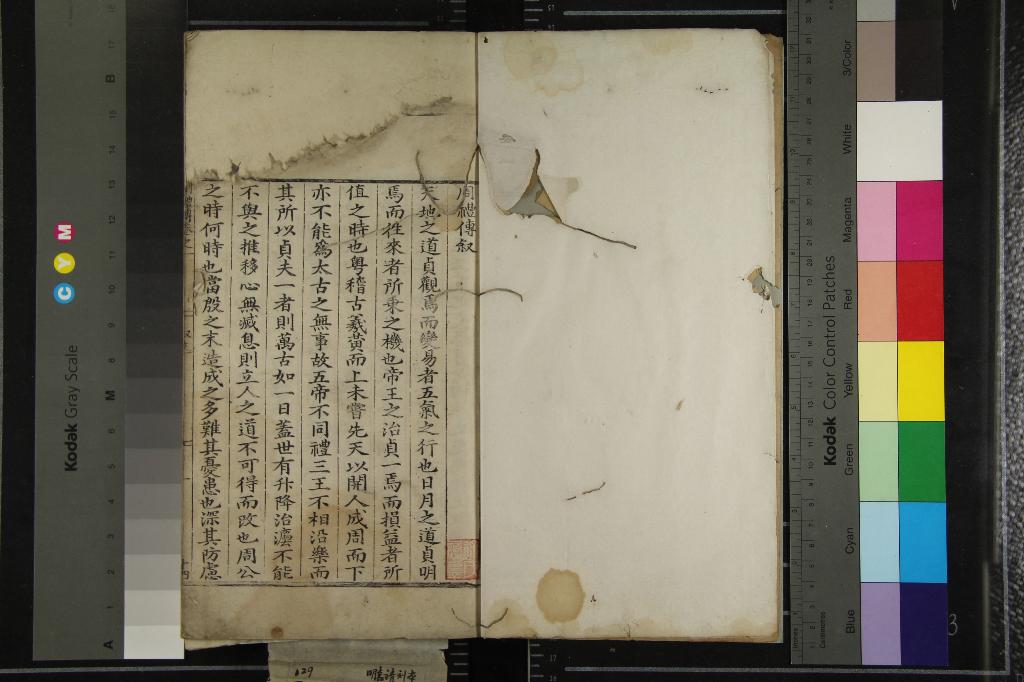 周禮傳叙
天地之道貞觀焉而變易者五氣之行也日月之道貞明
焉而徃來者所乗之機也帝王之治貞一焉而損益者所
值之時也粤稽古羲黃而上未嘗先天以開人成周而下
亦不能爲太古之無事故五帝不同禮三王不相沿樂而
其所以貞夫一者則萬古如一日蓋世有升降治瀍不能
不與之推移心無臧息則立人之道不可得而改也周公
之時何時也當殷之末造成之多難其憂患也深其防慮
629
Kodak Gray Scale
C Y M
A 1 2 3 4 5 6 M 8 9 10 11 12 13 14 15 B 17
Kodak Color Control Patches
Blue Cyan Green Yellow Red Magenta White 3/Color
Inches
Centimetres